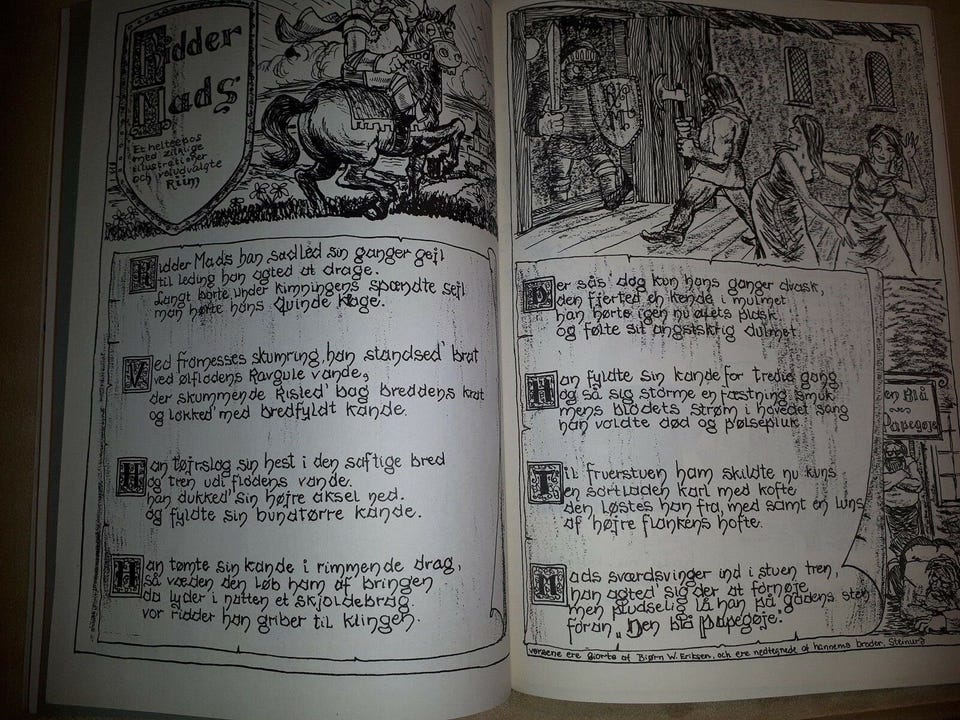 Ridder
Mads
Et helteepos
med zitlige
illustrationer
och veludvalgte
Riim
Ridder Mads han sadled sin ganger gejl
til leding han agted at drage.
Langt borte under kimningens spændte sejl
man hørte hans Quinde klage.
Ved fromesses skumring han standsed' brat
ved ølflodens Ravgule vande,
der skummende Risled' bag breddens krat
og lokked' med bredfyldt kande.
Han tøjrslog sin hest i den saftige bred
og tren udi flodens vande.
han dukked' sin højre aksel ned.
og fyldte sin bundtørre kande.
Han tømte sin kande i rimmende drag,
så væden den løb ham af bringen
da lyder i natten et skjoldebrag
vor ridder han griber til klingen.
Der sås' dog kun hans ganger dvask,
den fjerted en kende i mulmet
han hørte igen nu øllets plask
og følte sit angstskrig dulmet
Han fyldte sin kande for tredie gang
og så sig storme en fæstning smuk
mens blodets strøm i hovedet sang
han voldte død og pølsepluk
Til fruerstuen ham skildte nu kuns
en sortladen karl med kofte
den løstes han fra, med samt en luns
af højre flankens hofte.
Mads sværdsvinger ind i stuen tren,
han agted sig der at fornøje
men pludselig lå han på gadens sten
foran „Den blå papegøje."
en Blå
Papegøje
versene ere giorte af Bjørn W. Eriksen, och ere nedtegnede af hannems broder,